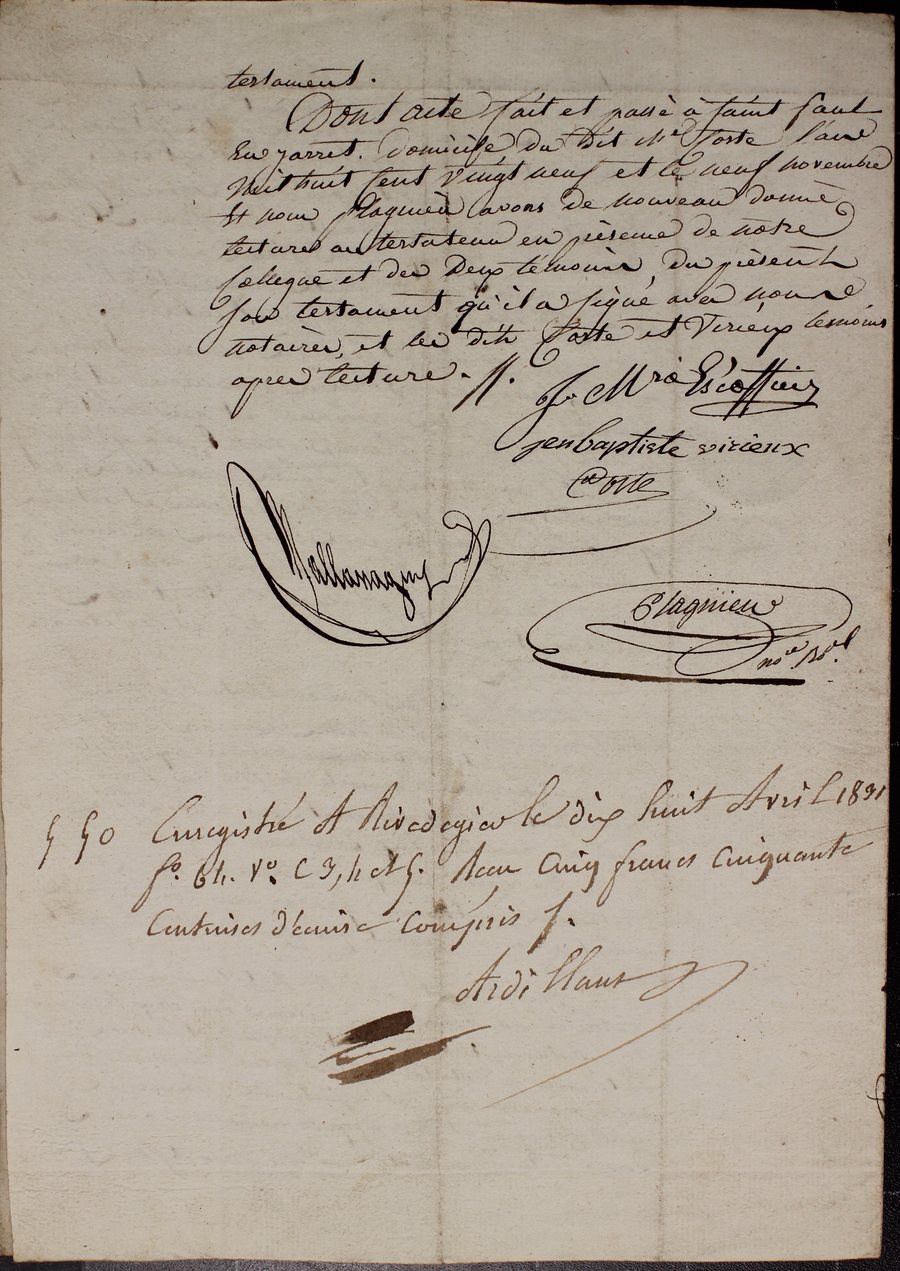 testament.
Dont acte fait et passé à saint paul
En jarret. domicile du Dit Mr Coste l'an
Mil huit cent vingt neuf et le neuf novembre
Et nous Plagnieu avons de nouveau donné
lecture au testateur en présence de notre
collegue et des Deux témoins, Du présent
son testament qu'il a signé avec nous
notaires, et les dits Coste et Virieux temoins
apres lecture. //.
J. Mrie Escoffier
jenbaptiste virieux
Coste
Plagnieu
nore Roal
5 50 Enregistré A Rivedegier le dix huit Avril 1831
fo. 64. Vo. C 3, 4 et 5. Reçu Cinq francs Cinquante
Centimes décime Compris /.
Ardillaut